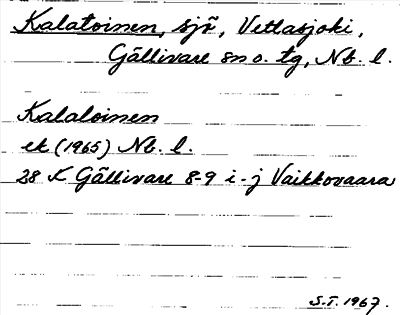 Kalatoinen, sjö, Vettasjoki,
Gällivare sn o. tg, Nb. l.
Kalatoinen
ek (1965) Nb. l.
28 K Gällivare 8-9 i-j Vaikkovaara
S.T. 1967.